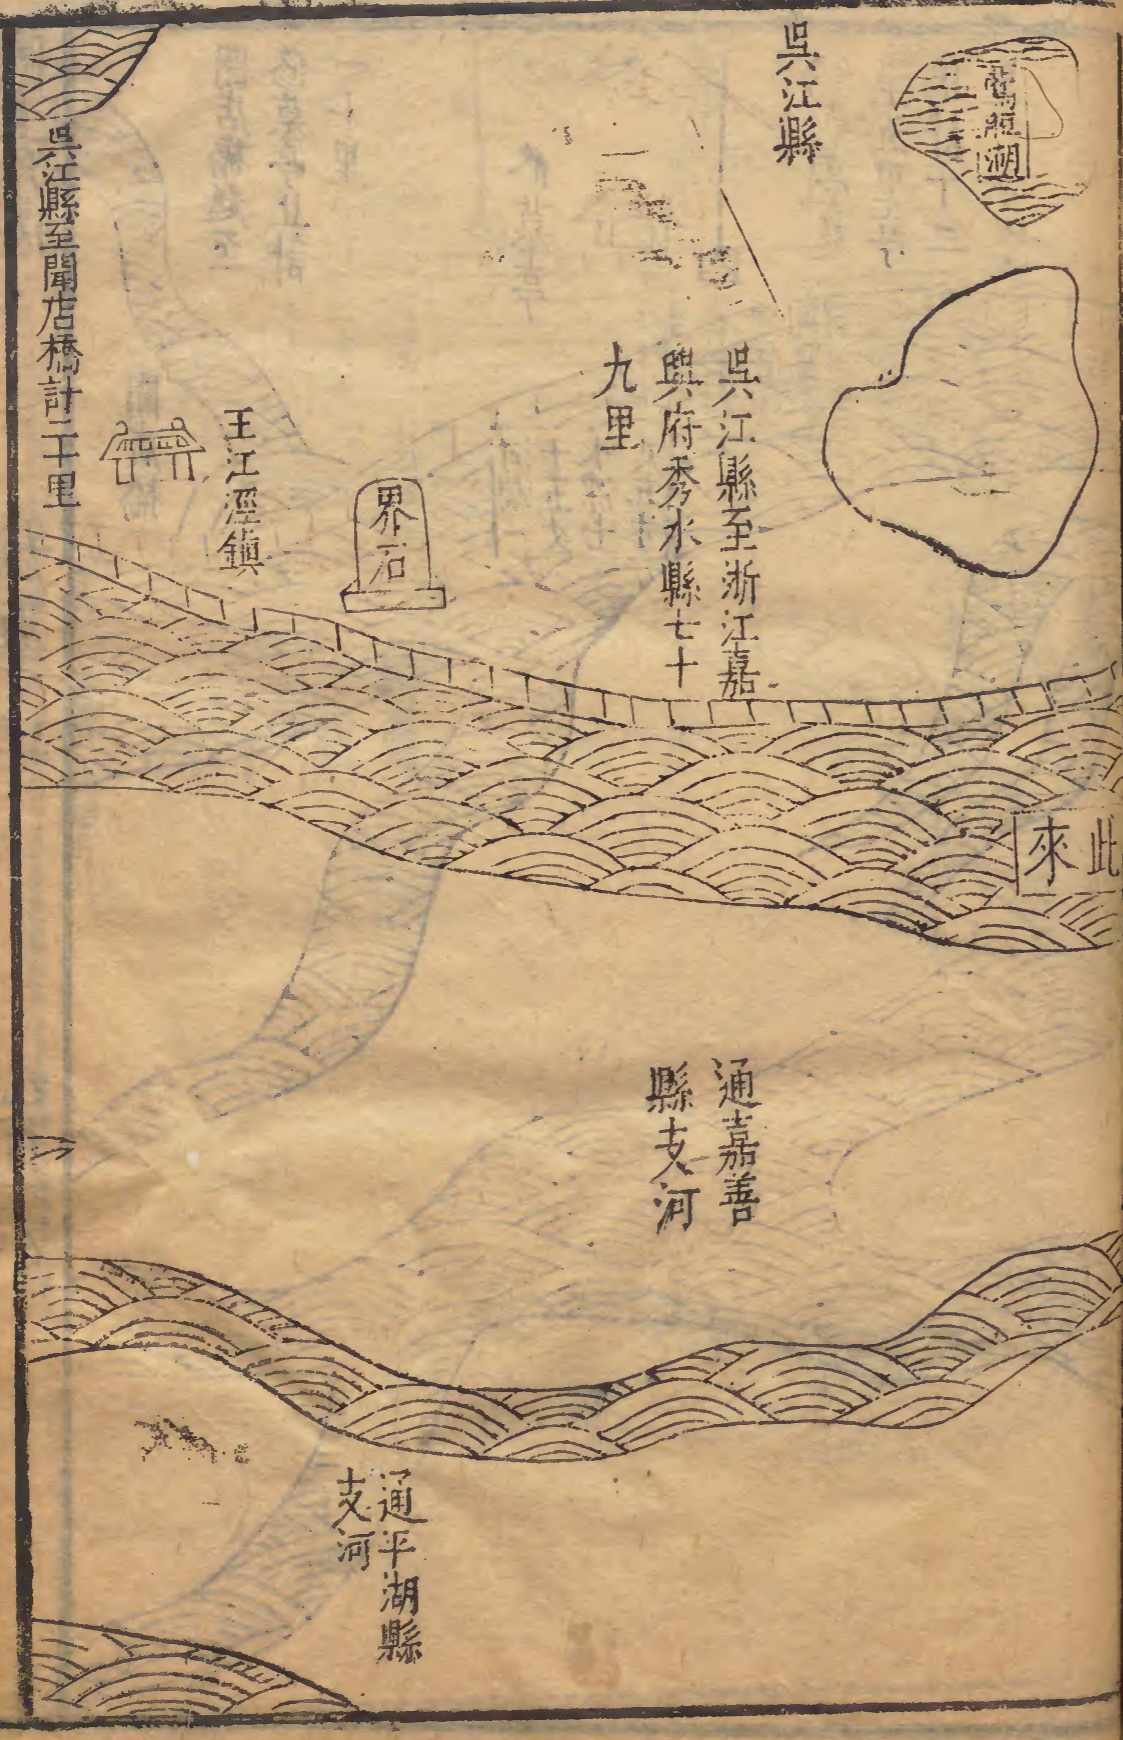 鶯脰湖
吳江縣
吳江縣至浙江嘉
興府秀水縣七十
九里
界石
王江涇鎮
吳江縣至聞店橋計二十里
此
來
通嘉善
縣支河
通平湖縣
支河